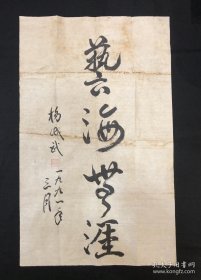 藝海無涯
楊成武
一九九一年
三月